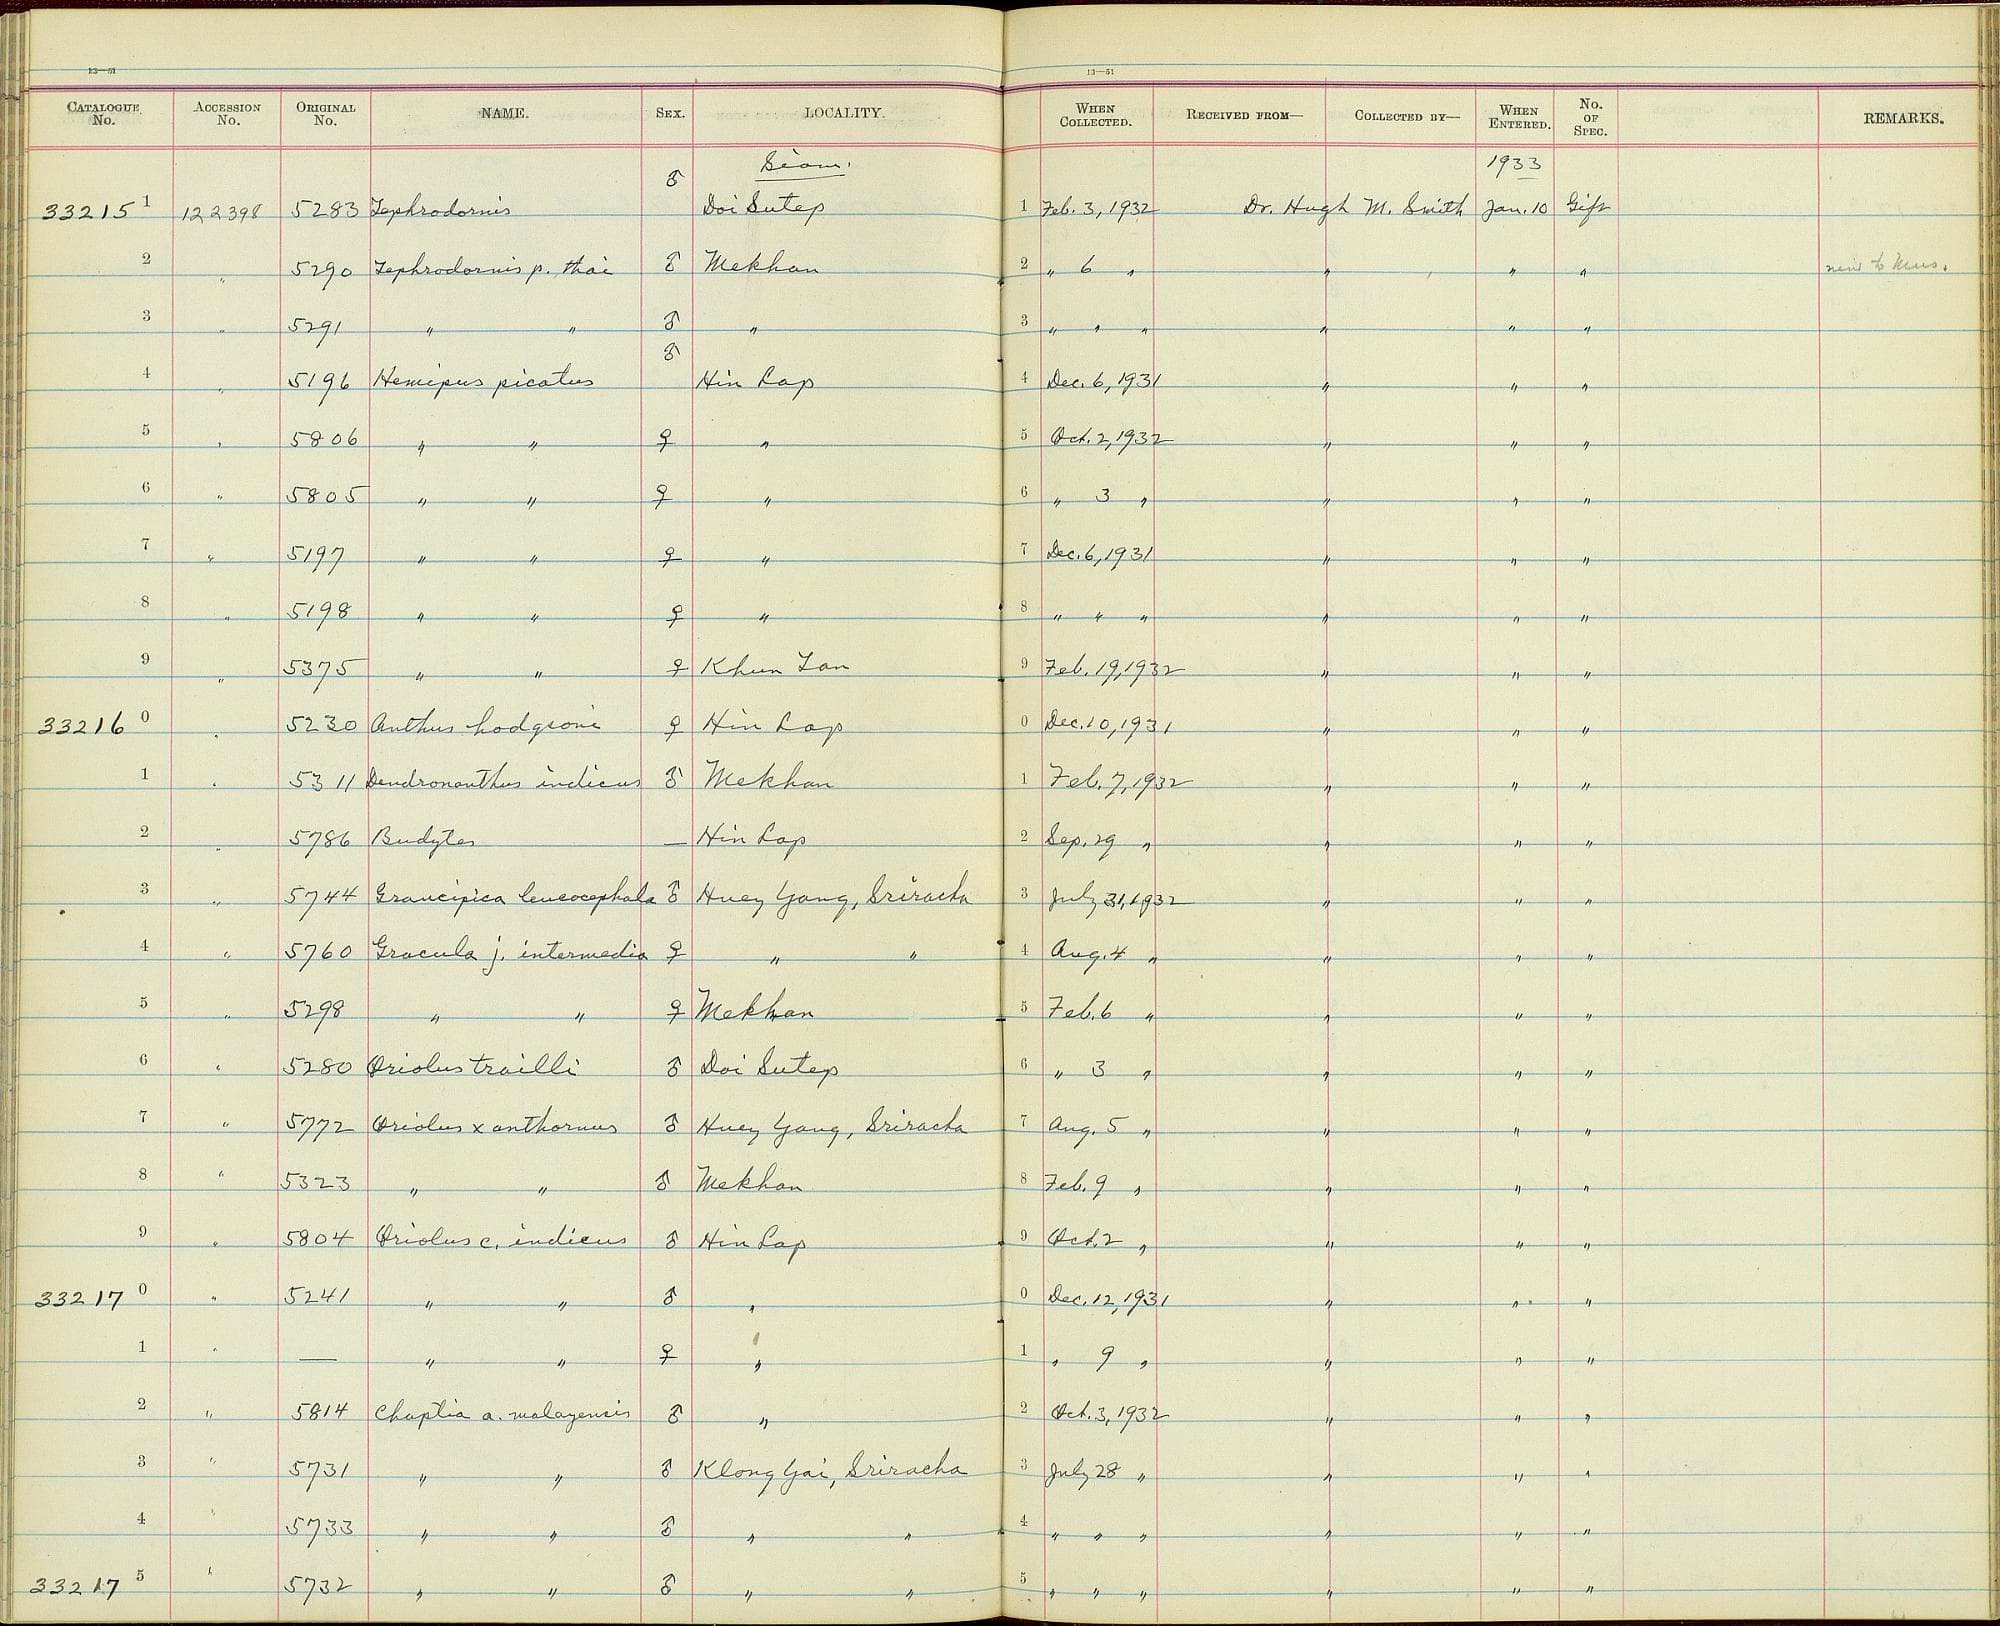 13—51 13—51
CATALOGUE No. ACCESSION No. ORIGINAL No. NAME. SEX. LOCALITY. WHEN COLLECTED. RECEIVED FROM— COLLECTED BY— WHEN ENTERED. No. OF SPEC. REMARKS.
Siam. 1933
33215 1 122398 5283 Tephrodornis ♂ Doi Sutep 1 Feb. 3, 1932 Dr. Hugh M. Smith Jan. 10 Gift
2 " 5290 Tephrodornis p. thai ♂ Mekhan 2 " 6 " " " " new to Mus.
3 " 5291 " " ♂ " 3 " " " " " "
4 " 5196 Hemipus picatus ♂ Hin Lap 4 Dec. 6, 1931 " " "
5 " 5806 " " ♀ " 5 Oct. 2, 1932 " " "
6 " 5805 " " ♀ " 6 " 3 " " " "
7 " 5197 " " ♀ " 7 Dec. 6, 1931 " " "
8 " 5198 " " ♀ " 8 " " " " " "
9 " 5375 " " ♀ Khun Tan 9 Feb. 19, 1932 " " "
33216 0 " 5230 Anthus hodgsoni ♀ Hin Lap 0 Dec. 10, 1931 " " "
1 " 5311 Dendronanthus indicus ♂ Mekhan 1 Feb. 7, 1932 " " "
2 " 5786 Budytes — Hin Lap 2 Sep. 29 " " " "
3 " 5744 Graucipica leucocephala ♂ Huey Yang, Sriracha 3 July 31, 1932 " " "
4 " 5760 Gracula j. intermedia ♀ " " 4 Aug. 4 " " " "
5 " 5298 " " ♀ Mekhan 5 Feb. 6 " " " "
6 " 5280 Oriolus trailli ♂ Doi Sutep 6 " 3 " " " "
7 " 5772 Oriolus xanthornus ♂ Huey Yang, Sriracha 7 Aug. 5 " " " "
8 " 5323 " " ♂ Mekhan 8 Feb. 9 " " " "
9 " 5804 Oriolus c. indicus ♂ Hin Lap 9 Oct. 2 " " " "
33217 0 " 5241 " " ♂ " 0 Dec. 12, 1931 " " "
1 " — " " ♀ " 1 " 9 " " " "
2 " 5814 Chaptia a. malayensis ♂ " 2 Oct. 3, 1932 " " "
3 " 5731 " " ♂ Klong Yai, Sriracha 3 July 28 " " " "
4 " 5733 " " ♂ " " 4 " " " " " "
33217 5 " 5732 " " ♂ " " 5 " " " " " "